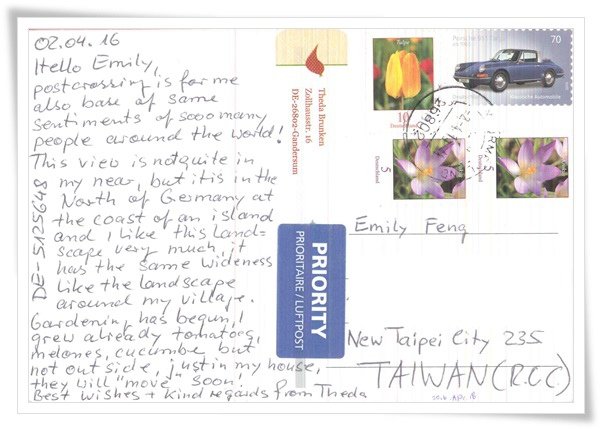 02.04.16
Hello Emily,
postcrossing is for me
also base of same
sentiments of sooo many
people around the world!
This view is not quite in
my near, but it is in the
North of Germany at
the coast of an island
and I like this land-
scape very much, it
has the same wideness
like the landscape
around my village.
Gardening has begun, I
grew already tomatoes,
melones, cucumbe, but
not outside, just in my house,
they will "move" soon!
Best wishes + kind regards from Theda
DE-5125648
Theda Brunken
Zollhausstr. 16
DE-26802-Gandersum
PRIORITY
PRIORITAIRE / LUFTPOST
Tulpe
10
70
Klassische Automobile
5
Deutschland
5
Deutschland
Emily Feng
New Taipei City 235
TAIWAN (R.O.C.)